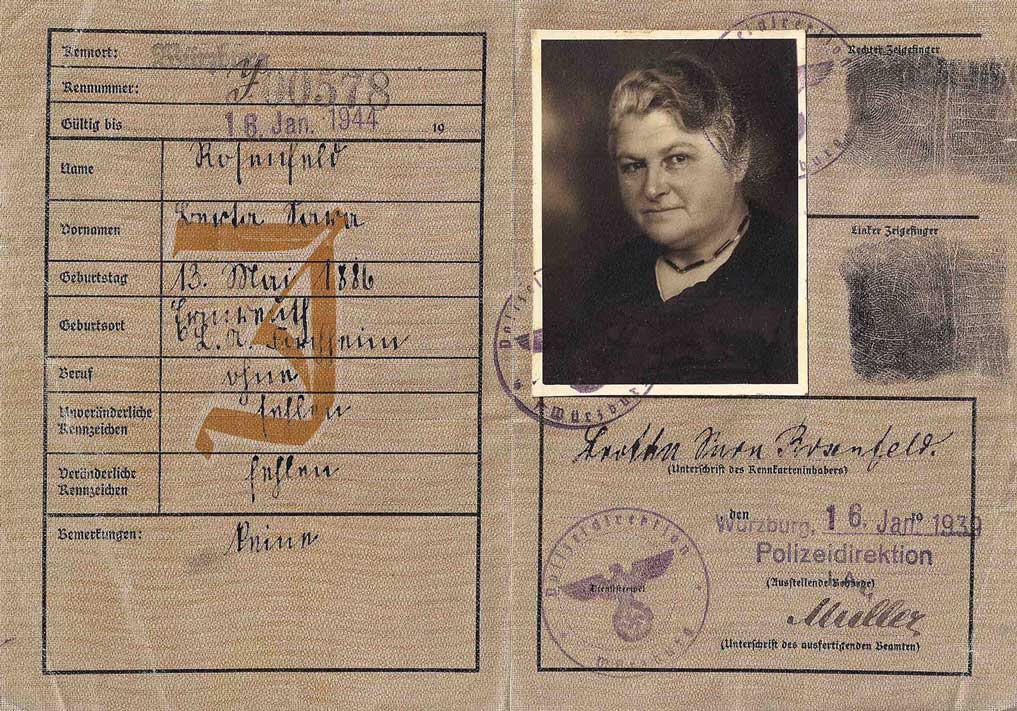 Kennort: Würzburg
Kennummer: J 00578
Gültig bis 16. Jan. 1944 19
Name Rosenfeld
Vornamen Berta Sara
Geburtstag 13. Mai 1886
Geburtsort Ermreuth
B. A. Forchheim
Beruf ohne
Unveränderliche Kennzeichen fehlen
Veränderliche Kennzeichen fehlen
Bemerkungen: Keine
J
Rechter Zeigefinger
Linker Zeigefinger
Polizeidirektion
Würzburg
Bertha Sara Rosenfeld.
(Unterschrift des Kennkarteninhabers)
Würzburg, den 16. Jan. 1939
Polizeidirektion
(Ausstellende Behörde)
I.A.
Müller
(Unterschrift des ausfertigenden Beamten)
Polizeidirektion
Würzburg
Dienststempel